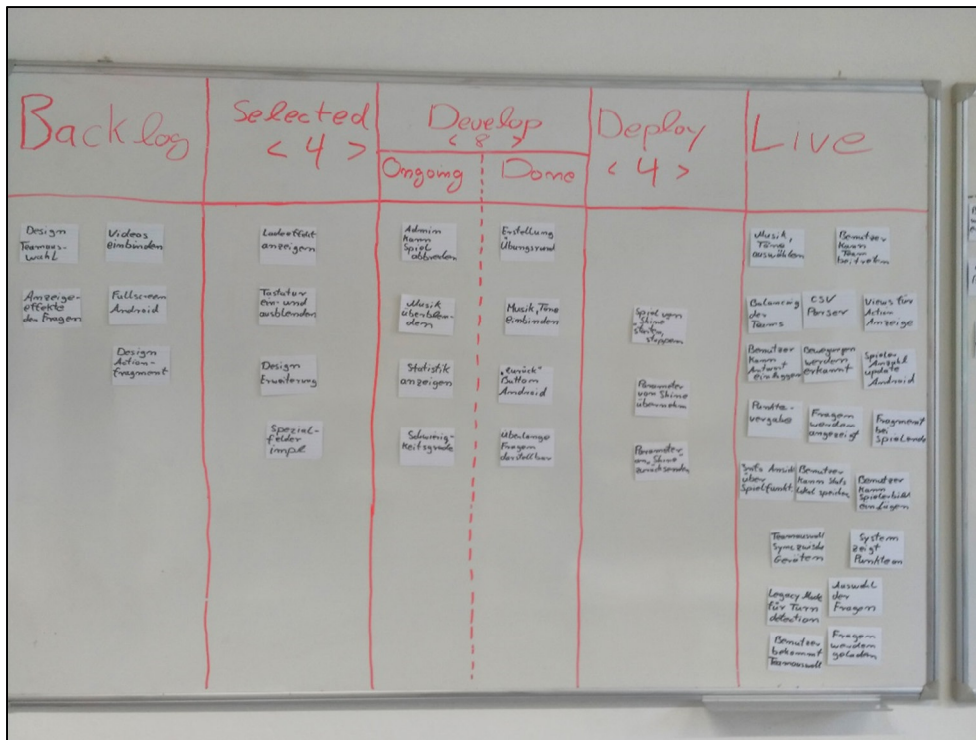 Backlog
Selected
< 4 >
Develop
< 8 >
Ongoing
Done
Deploy
< 4 >
Live
Design
Teamaus-
wahl
Videos
einbinden
Anzeige-
effekte
der Fragen
Fullscreen
Android
Design
Action-
fragment
anzeigen
Tastatur
ein- und
ausblenden
Design
Erweiterung
Spezial-
felder
impl.
Admin
kann
Spiel
abbrechen
Musik
überblen-
den
Statistik
anzeigen
Schwierig-
keitsgrade
Erstellung
Musik, Töne
einbinden
"Zurück"
Button
Android
Überlange
Fragen
darstellbar
Spiel von
Shine
starten,
stoppen
Parameter
von Shine
übernehm
Parameter
an "Shine"
zurücksenden
Musik,
Töne
auswählen
Benutzer
kann
Team
beitreten
Balancing
der
Teams
CSV
Parser
Views für
Action
Anzeige
Benutzer
kann
Antwort
einloggen
Bewegungen
werden
erkannt
Spieler
Anzahl
update
Android
Punkte-
vergabe
Fragen
werden
angezeigt
Fragment
bei
Spielende
Info Ansicht
über
Spielfunkt.
Benutzer
kann Stats
lokal speichern
Benutzer
kann
Spielerbild
einfügen
Teamauswahl
Sync zwische
Geräten
System
zeigt
Punkte an
Legacy Mode
für Turn
detection
Auswahl
der
Fragen
Benutzer
bekommt
Teamauswahl
Fragen
werden
geladen